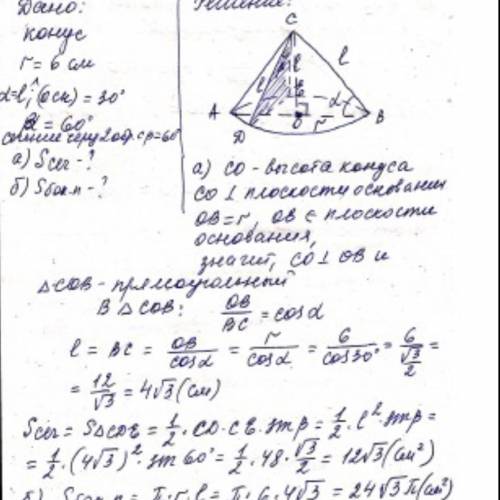 Дано:
конус
r = 6 см
α = l,^(осн) = 30°
β = 60°
сечение через 2 обр. ср = 60°
а) Sсеч - ?
б) Sбок.п - ?
Решение:
C
l
l
l
A
D
E
O
r
α
B
а) CO - высота конуса
CO ⊥ плоскости основания
OB = r, OB ∈ плоскости
основания,
значит, CO ⊥ OB и
△COB - прямоугольный
В △COB: OB/BC = cosα
l = BC = OB/cosα = r/cosα = 6/cos30° = 6/(√3/2) =
= 12/√3 = 4√3 (см)
Sсеч = S△CDE = 1/2 · CD · CE · sin β = 1/2 · l² · sin β =
= 1/2 · (4√3)² · sin 60° = 1/2 · 48 · √3/2 = 12√3 (см²)
б) Sбок.п = π · r · l = π · 6 · 4√3 = 24√3 π (см²)